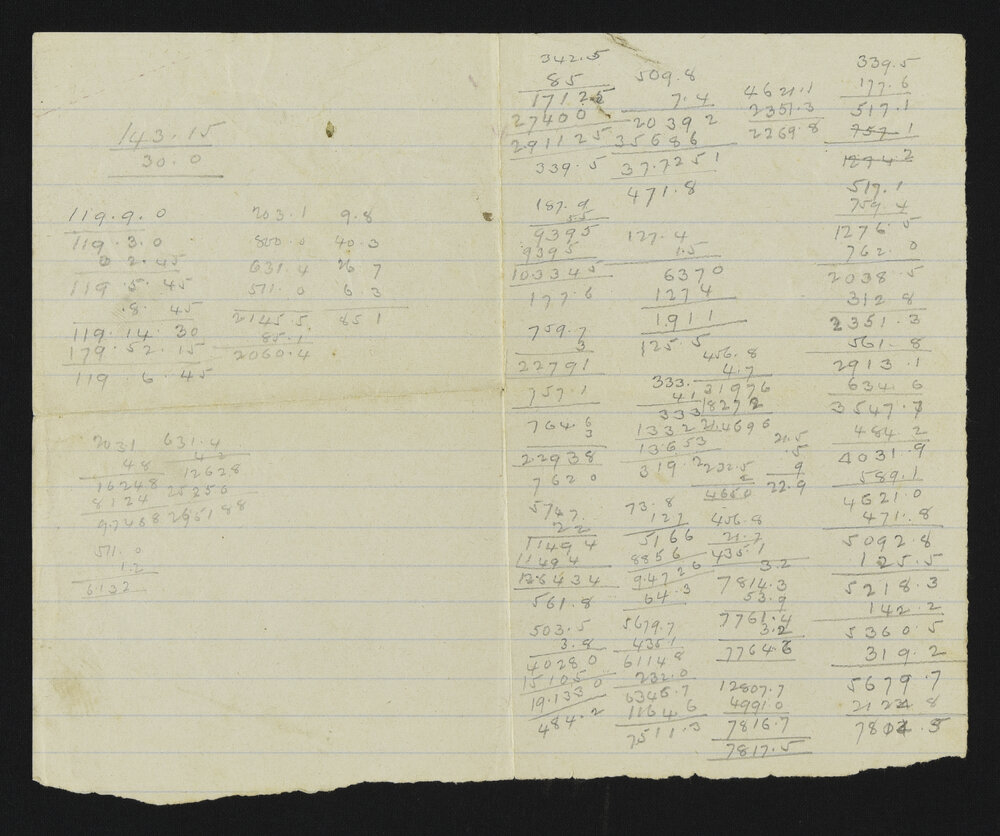 143.15
30.0
119.9.0
119.3.0
2.45
119.5.45
.8.45
119.14.30
179.52.15
119.6.45
203.1 9.8
800.0 40.3
631.4 26.7
511.0 6.3
2145.5 85.1
85.1
2060.4
2031
48
16248
8124
97488
631.4
42
12628
25256
265188
511.0
1.2
6132
342.5
85
17125
27400
291125
339.5
187.9
55
9395
9395
103345
177.6
759.7
3
22791
757.1
764.6
3
22938
762.0
5747
22
11494
11494
126434
561.8
503.5
3.8
40280
15105
19.1330
484.2
509.8
7.4
20392
35686
37.7251
471.8
127.4
1.5
6370
1274
1911
125.5
333.
41
333
1332
13653
319.2
73.8
127
5166
8856
94726
64.3
5679.7
435.1
6114.8
232.0
6346.7
1164.6
7511.3
4621.1
2351.3
2269.8
456.8
4.7
31976
18272
214696
21.5
.5
9
22.9
232.5
2
465.0
456.8
21.7
435.1
3.2
7814.3
53.9
7761.4
3.2
7764.6
12807.7
4991.0
7816.7
7817.5
339.5
177.6
517.1
757.1
1274.2
517.1
759.4
1276.5
762.0
2038.5
312.8
2351.3
561.8
2913.1
634.6
3547.7
484.2
4031.9
589.1
4621.0
471.8
5092.8
125.5
5218.3
142.2
5360.5
319.2
5679.7
2124.8
7804.5